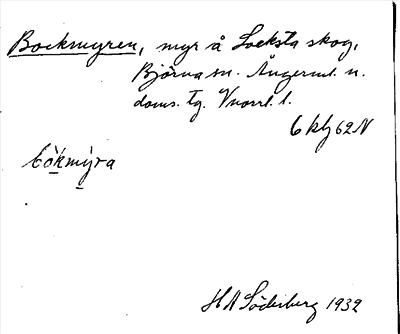 Bockmyren, myr å Locksta skog,
Björna sn. Ångerml. n.
doms. tg. Vnorrl. l.
6 klg 62 N
bòkmỳra
H A Söderberg 1932